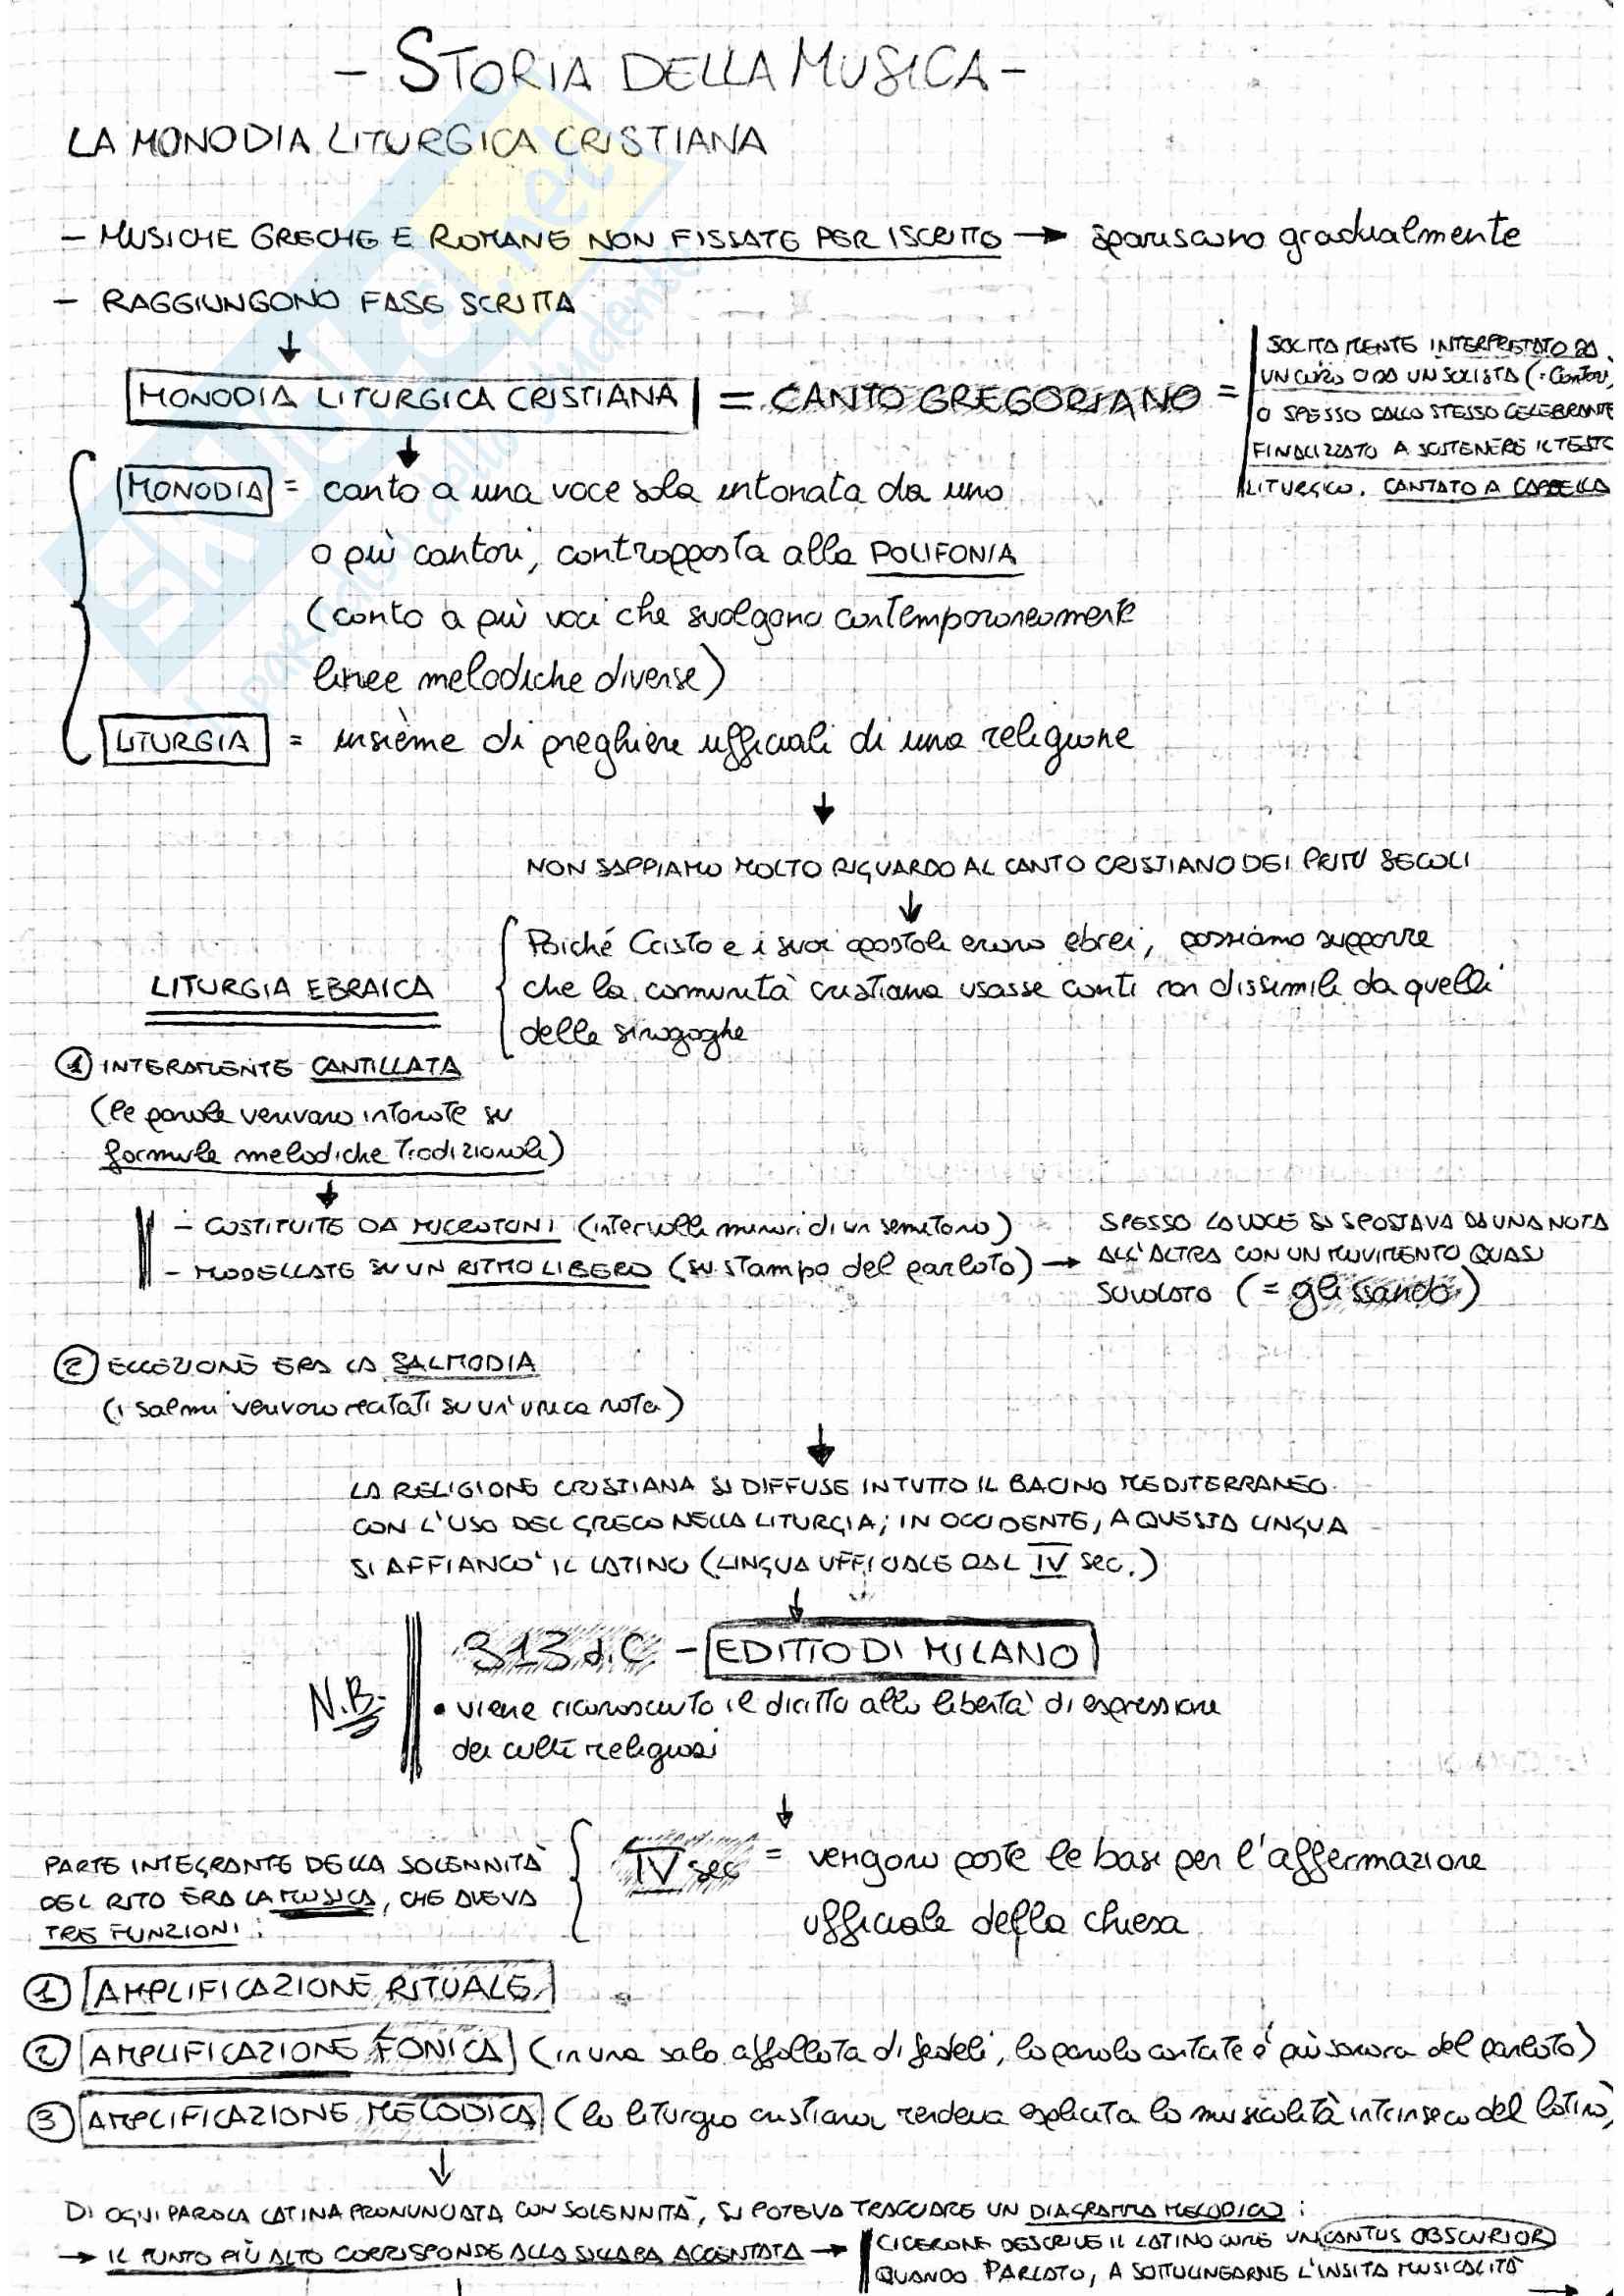 - STORIA DELLA MUSICA -
LA MONODIA LITURGICA CRISTIANA
- MUSICHE GRECHE E ROMANE NON FISSATE PER ISCRITTO → spariscono gradualmente
- RAGGIUNGONO FASE SCRITTA
↓
MONODIA LITURGICA CRISTIANA = CANTO GREGORIANO =
SOLITAMENTE INTERPRETATO DA
UN CORO O DA UN SOLISTA (= Cantori,
O SPESSO DALLO STESSO CELEBRANTE
FINALIZZATO A SOSTENERE IL TESTO
LITURGICO. CANTATO A CAPPELLA
↓
MONODIA = canto a una voce sola intonata da uno
o più cantori, contrapposta alla POLIFONIA
(canto a più voci che svolgono contemporaneamente
linee melodiche diverse)
LITURGIA = insieme di preghiere ufficiali di una religione
↓
NON SAPPIAMO MOLTO RIGUARDO AL CANTO CRISTIANO DEI PRIMI SECOLI
↓
Poiché Cristo e i suoi apostoli erano ebrei, possiamo supporre
che la comunità cristiana usasse canti non dissimili da quelli
delle sinagoghe
LITURGIA EBRAICA
① INTERAMENTE CANTILLATA
(le parole venivano intonate su
formule melodiche tradizionali)
↓
- COSTITUITE DA MICROTONI (intervalli minori di un semitono)
- MODELLATE SU UN RITMO LIBERO (su stampo del parlato) →
SPESSO LA VOCE SI SPOSTAVA DA UNA NOTA
ALL'ALTRA CON UN MOVIMENTO QUASI
SCIVOLATO (= glissando)
② ECCEZIONE ERA LA SALMODIA
(i salmi venivano recitati su un'unica nota)
↓
LA RELIGIONE CRISTIANA SI DIFFUSE IN TUTTO IL BACINO MEDITERRANEO
CON L'USO DEL GRECO NELLA LITURGIA; IN OCCIDENTE, A QUESTA LINGUA
SI AFFIANCO' IL LATINO (LINGUA UFFICIALE DAL IV sec.)
↓
N.B.
313 d.C - EDITTO DI MILANO
• viene riconosciuto il diritto alla libertà di espressione
dei culti religiosi
↓
IV sec = vengono poste le basi per l'affermazione
ufficiale della chiesa
PARTE INTEGRANTE DELLA SOLENNITÀ
DEL RITO ERA LA MUSICA, CHE AVEVA
TRE FUNZIONI:
① AMPLIFICAZIONE RITUALE
② AMPLIFICAZIONE FONICA (in una sala affollata di fedeli, la parola cantata è più sonora del parlato)
③ AMPLIFICAZIONE MELODICA (la liturgia cristiana rendeva esplicita la musicalità intrinseca del latino)
↓
DI OGNI PAROLA LATINA PRONUNCIATA CON SOLENNITÀ, SI POTEVA TRACCIARE UN DIAGRAMMA MELODICO:
→ IL PUNTO PIÙ ALTO CORRISPONDE ALLA SILLABA ACCENTATA →
CICERONE DESCRIVE IL LATINO COME UN CANTUS OBSCURIOR
QUANDO PARLATO, A SOTTOLINEARNE L'INSITA MUSICALITÀ